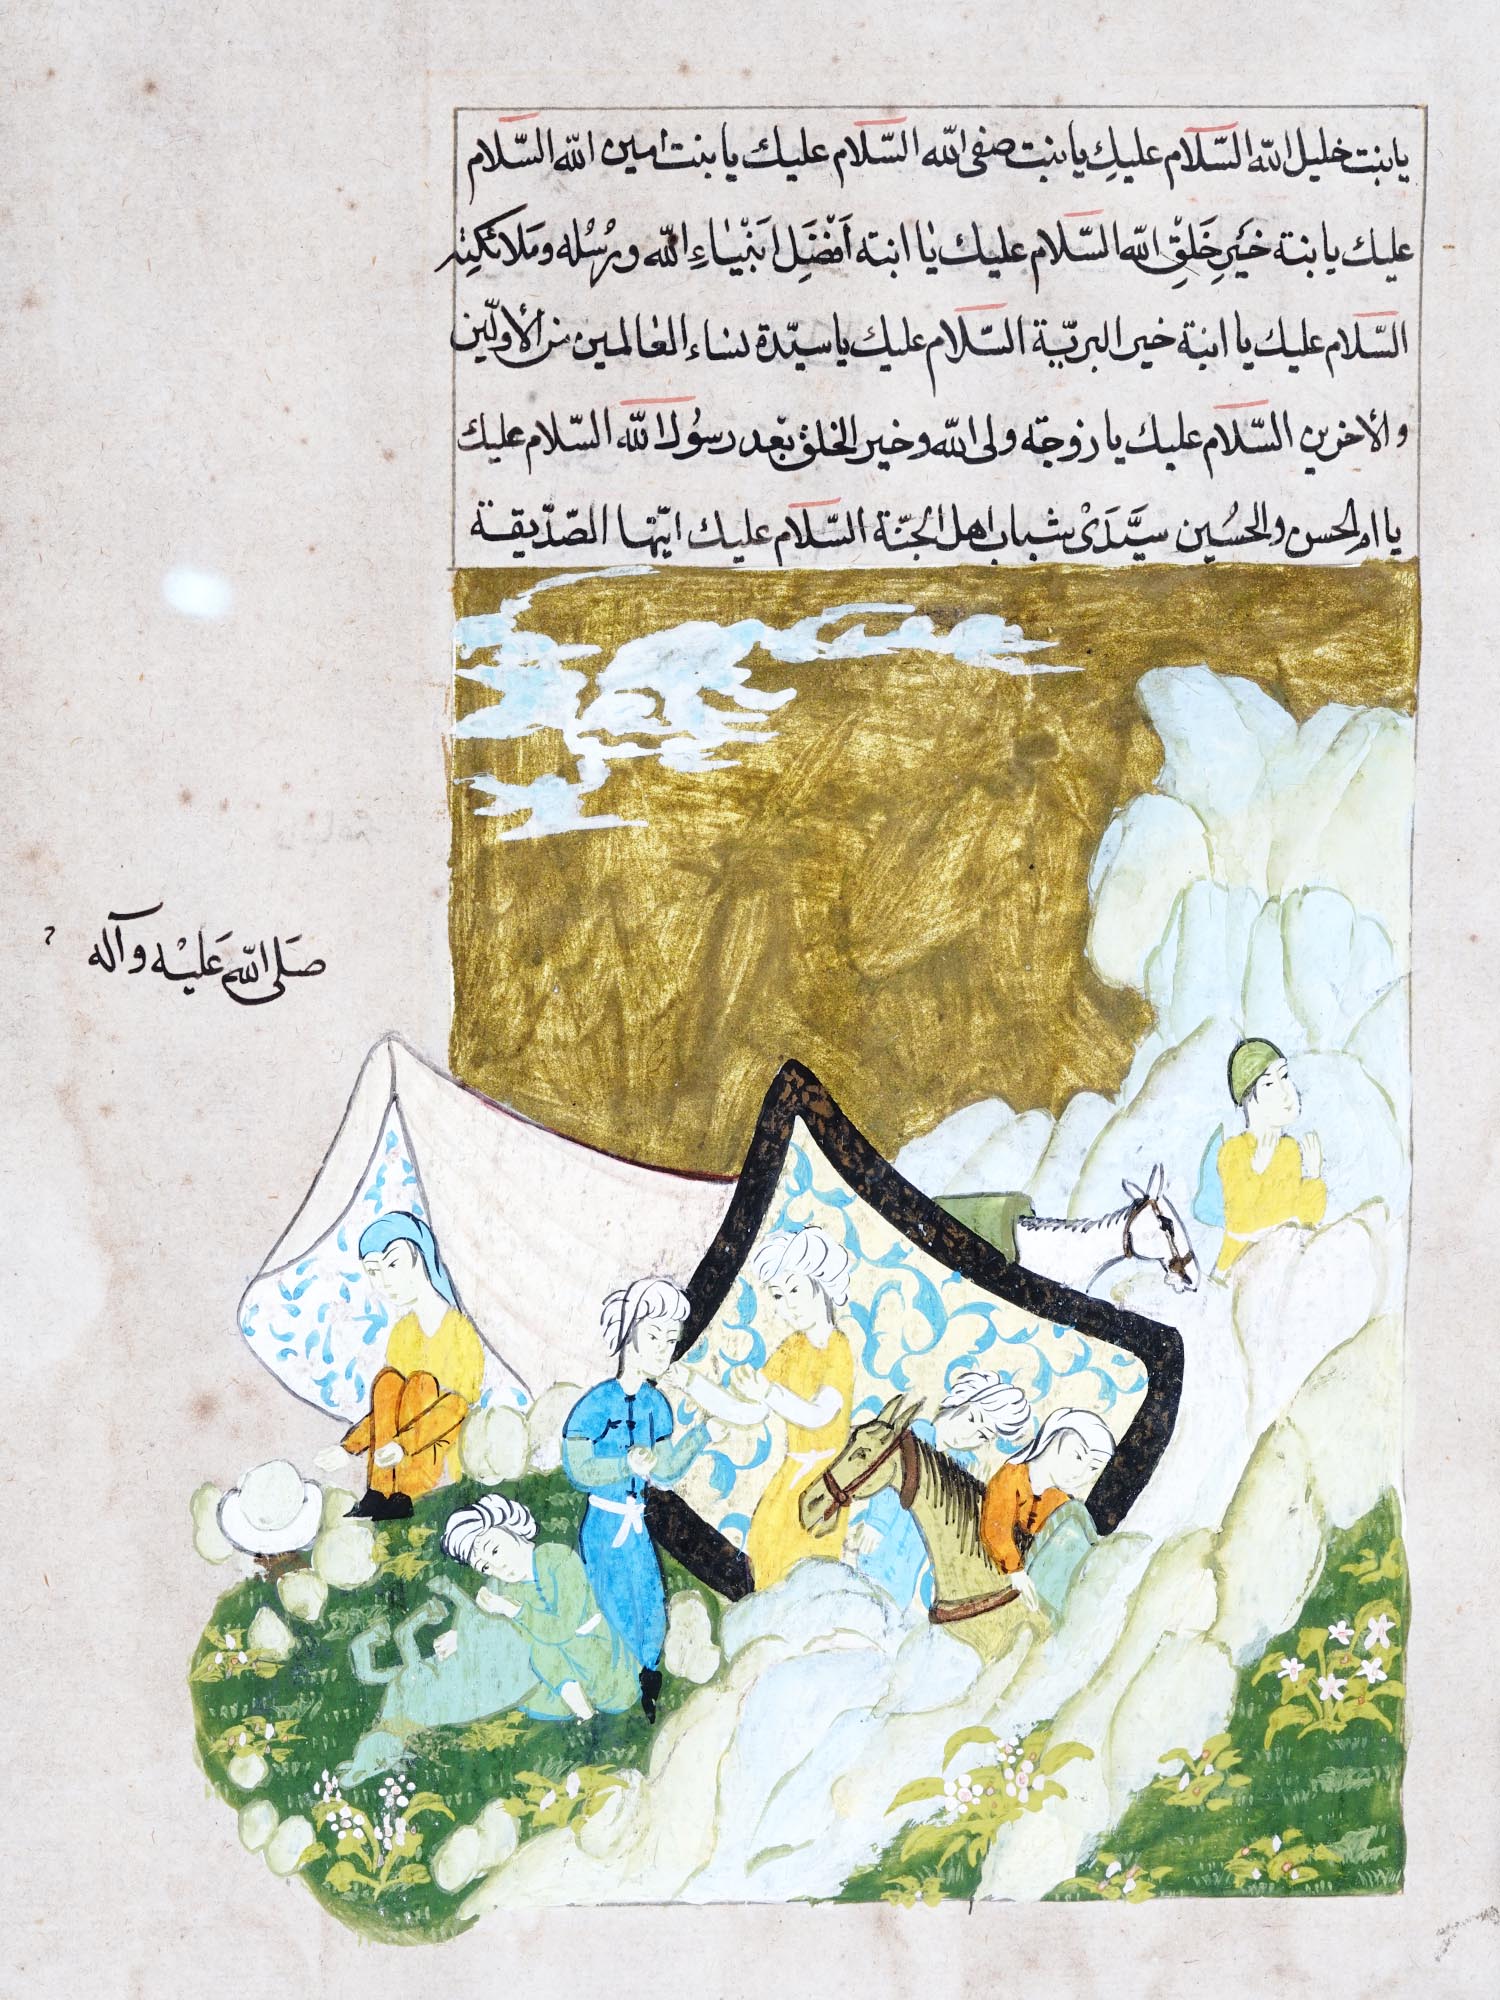 يا بنت خليل الله السّلام عليكِ يا بنت صفى الله السّلام عليك يا بنت امين الله السّلام
عليك يا بنة خَيرِ خَلقِ الله السّلام عليك يا ابنة اَفضَلِ اَنبْيٰاءِ الله ورُسُله ومَلائكته
السّلام عليك يا ابنة خير البريّة السّلام عليك يا سيّدة نساء العالمين من الأولّين
والأخرين السّلام عليك يا زوجة ولى الله وخير الخلق بَعد رسوُل الله السّلام عليك
يا ام الحسن والحسُين سيَّدَىْ شباب اهل الجنّة السّلام عليك ايّتها الصّدّيقة
صَلى الله عَليْه وآله